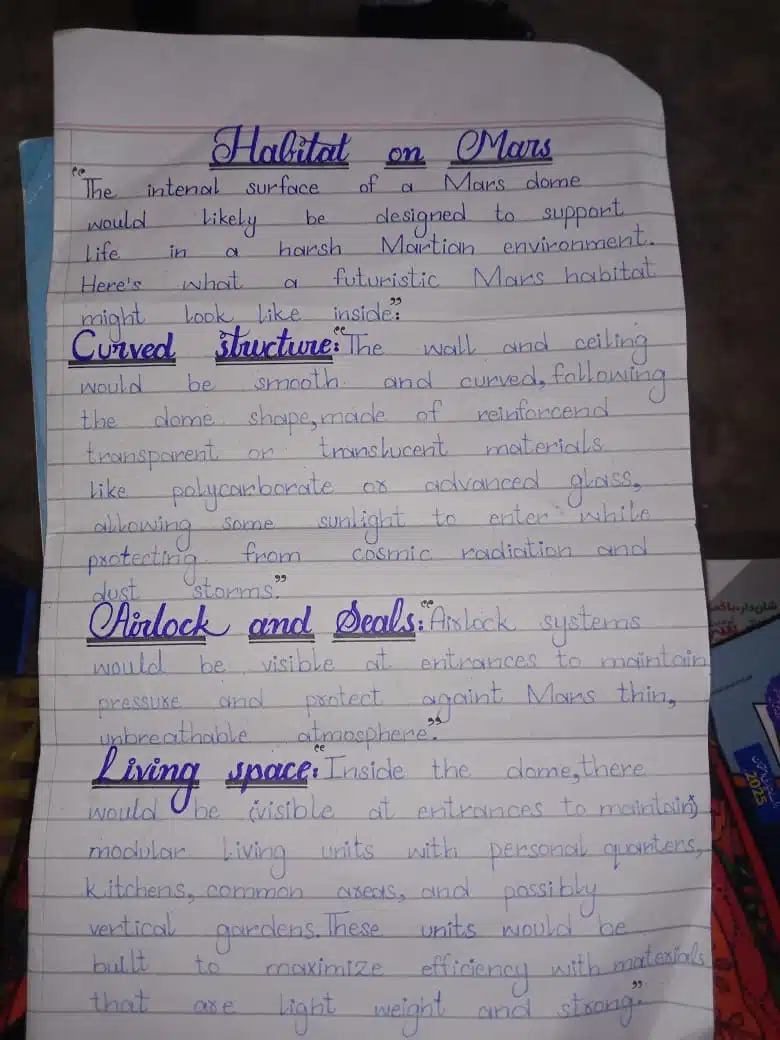 Habitat on Mars
"The intenal surface of a Mars dome
would likely be designed to support
life in a harsh Martian environment.
Here's what a futuristic Mars habitat
might look like inside:"
Curved structure: "The wall and ceiling
would be smooth and curved, following
the dome shape, made of reinforcend
transparent or translucent materials
like polycarborate or advanced glass,
allowing some sunlight to enter while
protecting from cosmic radiation and
dust storms."
Airlock and Seals: "Airlock systems
would be visible at entrances to maintain
pressure and protect againt Mars thin,
unbreathable atmosphere."
Living space: "Inside the dome, there
would be (visible at entrances to maintain)
modular living units with personal quarters,
kitchens, common areas, and possibly
vertical gardens. These units would be
built to maximize efficiency with materials
that are light weight and strong."
2025